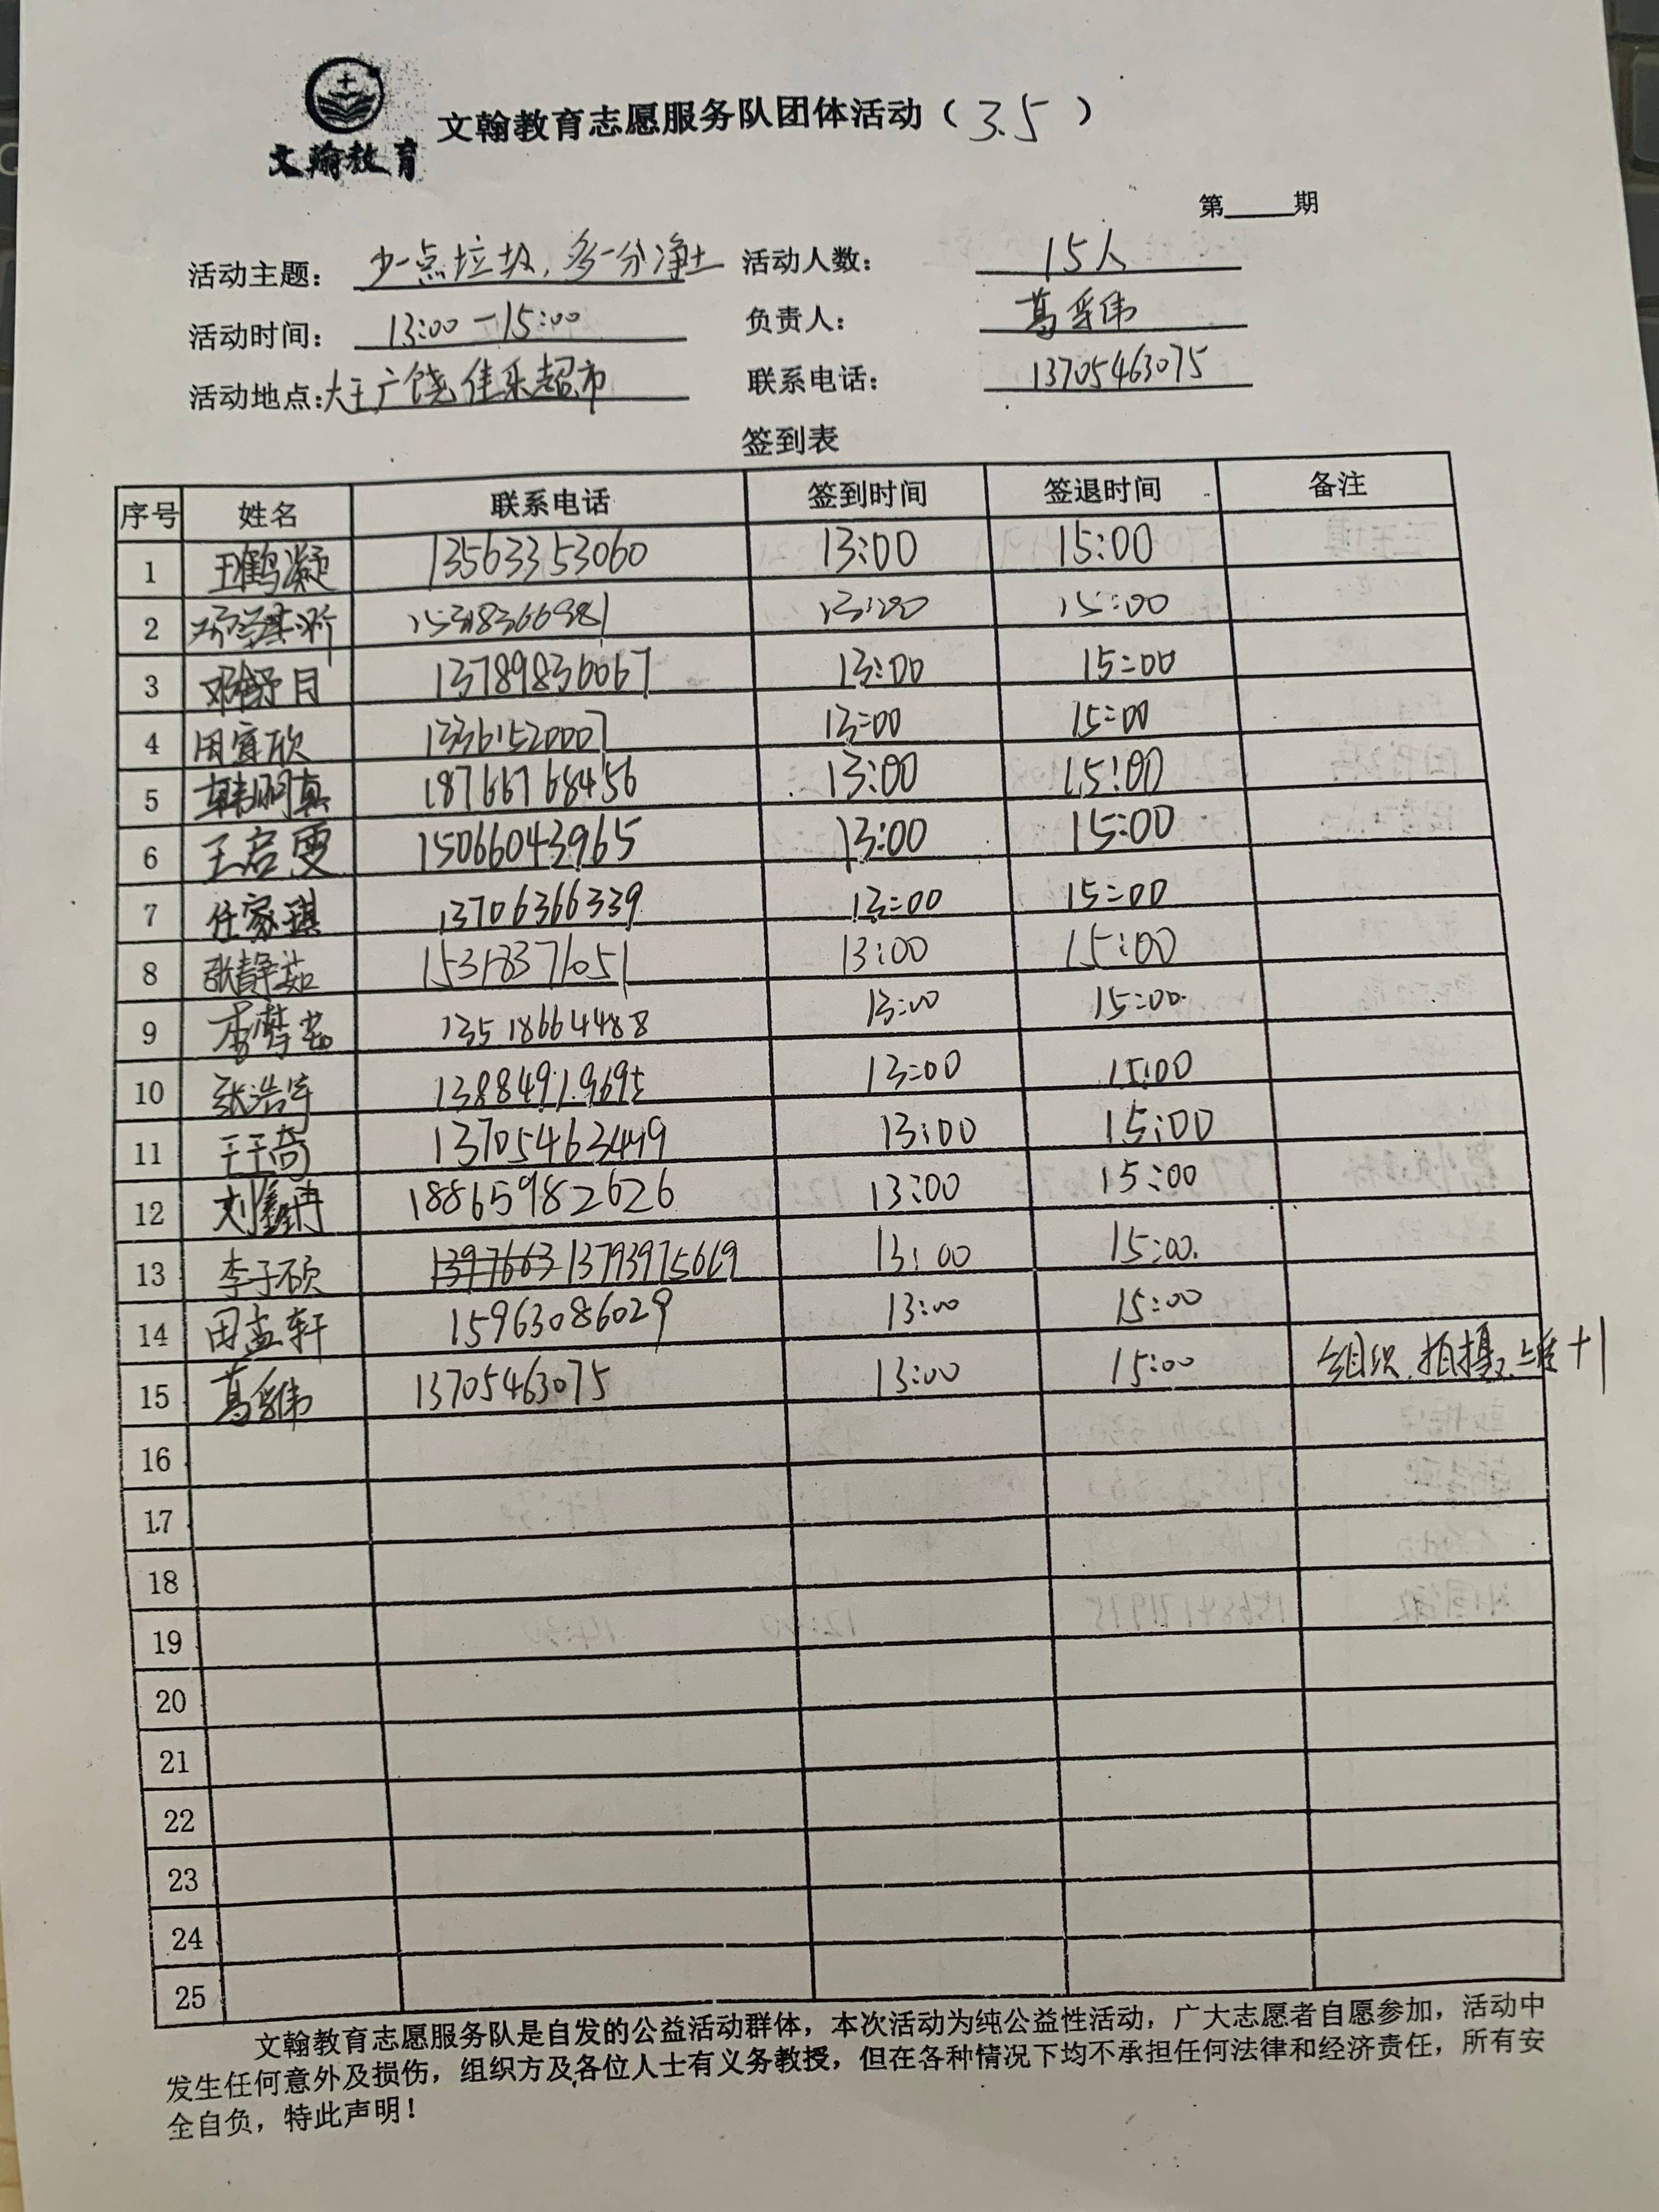 文翰教育
文翰教育志愿服务队团体活动（3.5）
第____期
活动主题：少一点垃圾，多一分净土 活动人数：15人
活动时间：13:00—15:00 负责人：葛采伟
活动地点：大王广饶佳乐超市 联系电话：13705463075
签到表
序号 姓名 联系电话 签到时间 签退时间 备注
1 王鹤凝 13563353060 13:00 15:00
2 15318366981 13:00 15:00
3 邓舒月 13789836067 13:00 15:00
4 田宜欣 13361520007 13:00 15:00
5 韩明真 18766768456 13:00 15:00
6 王启雯 15066043965 13:00 15:00
7 任家琪 13706366339 13:00 15:00
8 张静茹 15318371051 13:00 15:00
9 李梦茹 13518664488 13:00 15:00
10 张浩宇 13884919695 13:00 15:00
11 王于奇 13705463449 13:00 15:00
12 刘鑫冉 18865982626 13:00 15:00
13 李子硕 1397663 13793975669 13:00 15:00
14 田孟轩 15963086029 13:00 15:00
15 葛采伟 13705463075 13:00 15:00 组织、拍摄、
16
17
18
19
20
21
22
23
24
25
文翰教育志愿服务队是自发的公益活动群体，本次活动为纯公益性活动，广大志愿者自愿参加，活动中
发生任何意外及损伤，组织方及各位人士有义务教授，但在各种情况下均不承担任何法律和经济责任，所有安
全自负，特此声明！